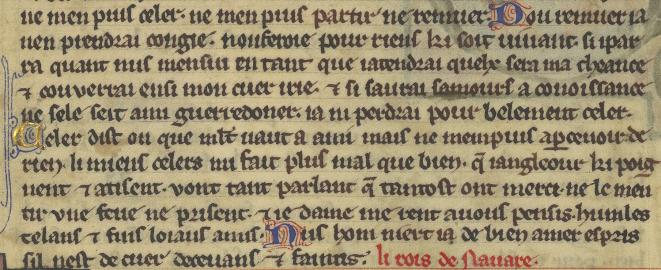 ne men puis celer. ne men puis partir ne remuer. Dou remuer ia
nen prendrai congie. non feroie pour riens ki soit uiuant. si ipar
ra quant mis me sui en tant que iatendrai quelx sera ma cheance
⁊ couuerrai ensi mon cuer irie. ⁊ si saurai samours a conoissance
ne sele seit ami guerredoner. ia ni perdrai pour belement celer.
Celer dist on que mlt uaut a ami mais ne mempuis apceuoir de
rien. li miens celers mi fait plus mal que bien. q̃ iangleour ki poig
nent ⁊ atisent. vont tant parlant q̃ tantost ont merci. ne le men
tir vne feue ne prisent. ⁊ ie dame me rent a uous pensis. humles
celans ⁊ fuis loiaus amis. Nus hom niert ia de bien amer espris
sil nest de cuer deceuans ⁊ faintis. li rois de nauare.